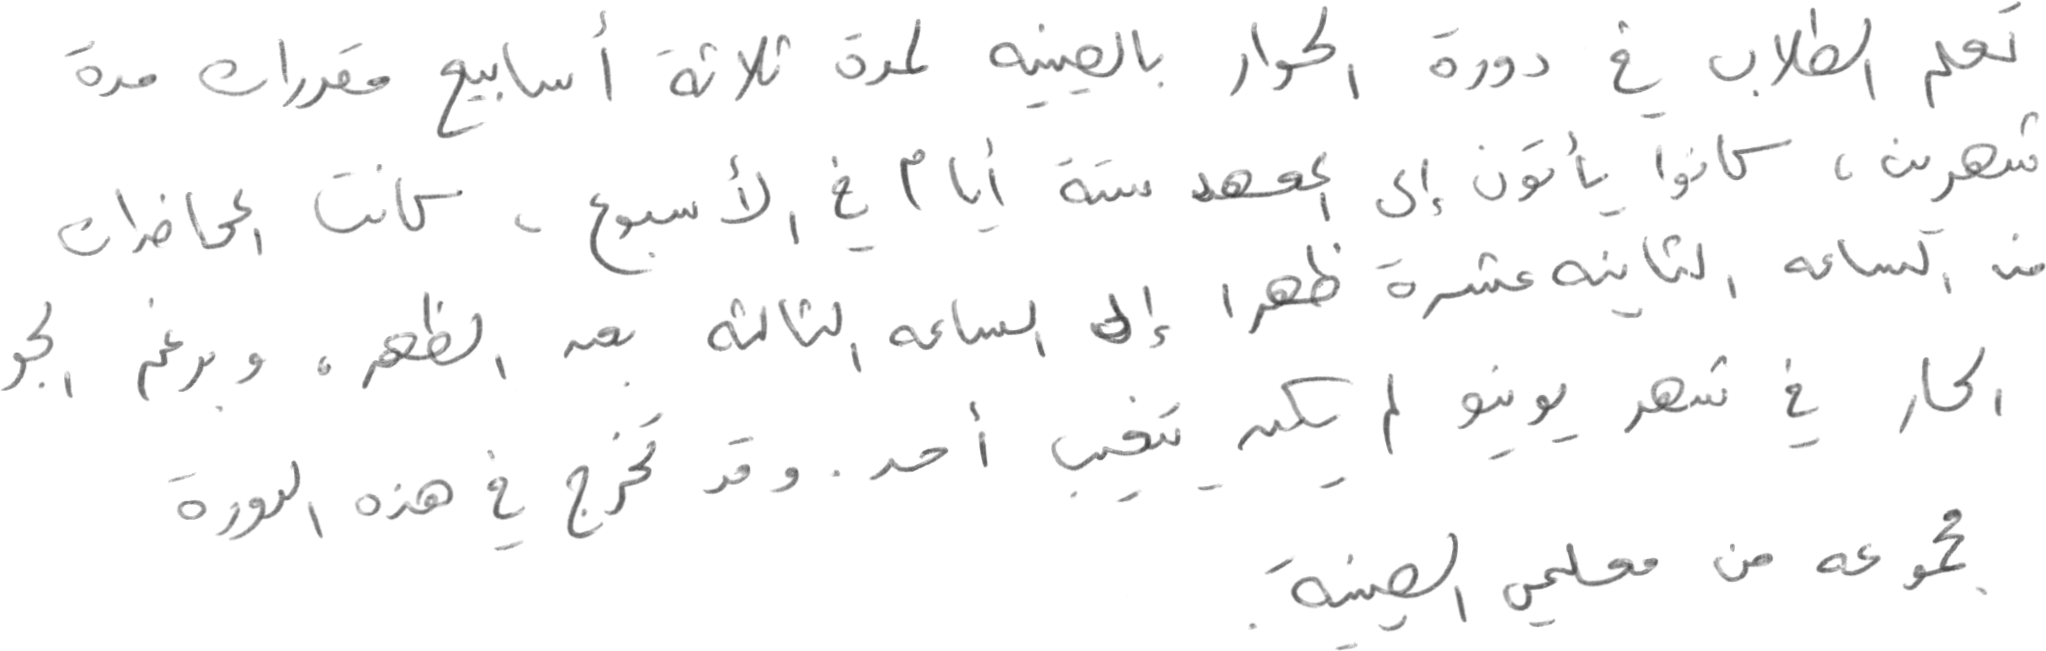 تعلم الطلاب في دورة الحوار بالصينيه لمدة ثلاثة أسابيع مقررات مدة
شهرين، كانوا يأتون إلى المعهد ستة أيام في الأسبوع، كانت المحاضرات
من الساعه الثانيه عشرة ظهرا إلى الساعه الثالثه بعد الظهر، وبرغم الجو
الحار في شهر يونيو لم يكن يتغيب أحد. وقد تخرج في هذه الدورة
مجموعه من معلمي الصينية.